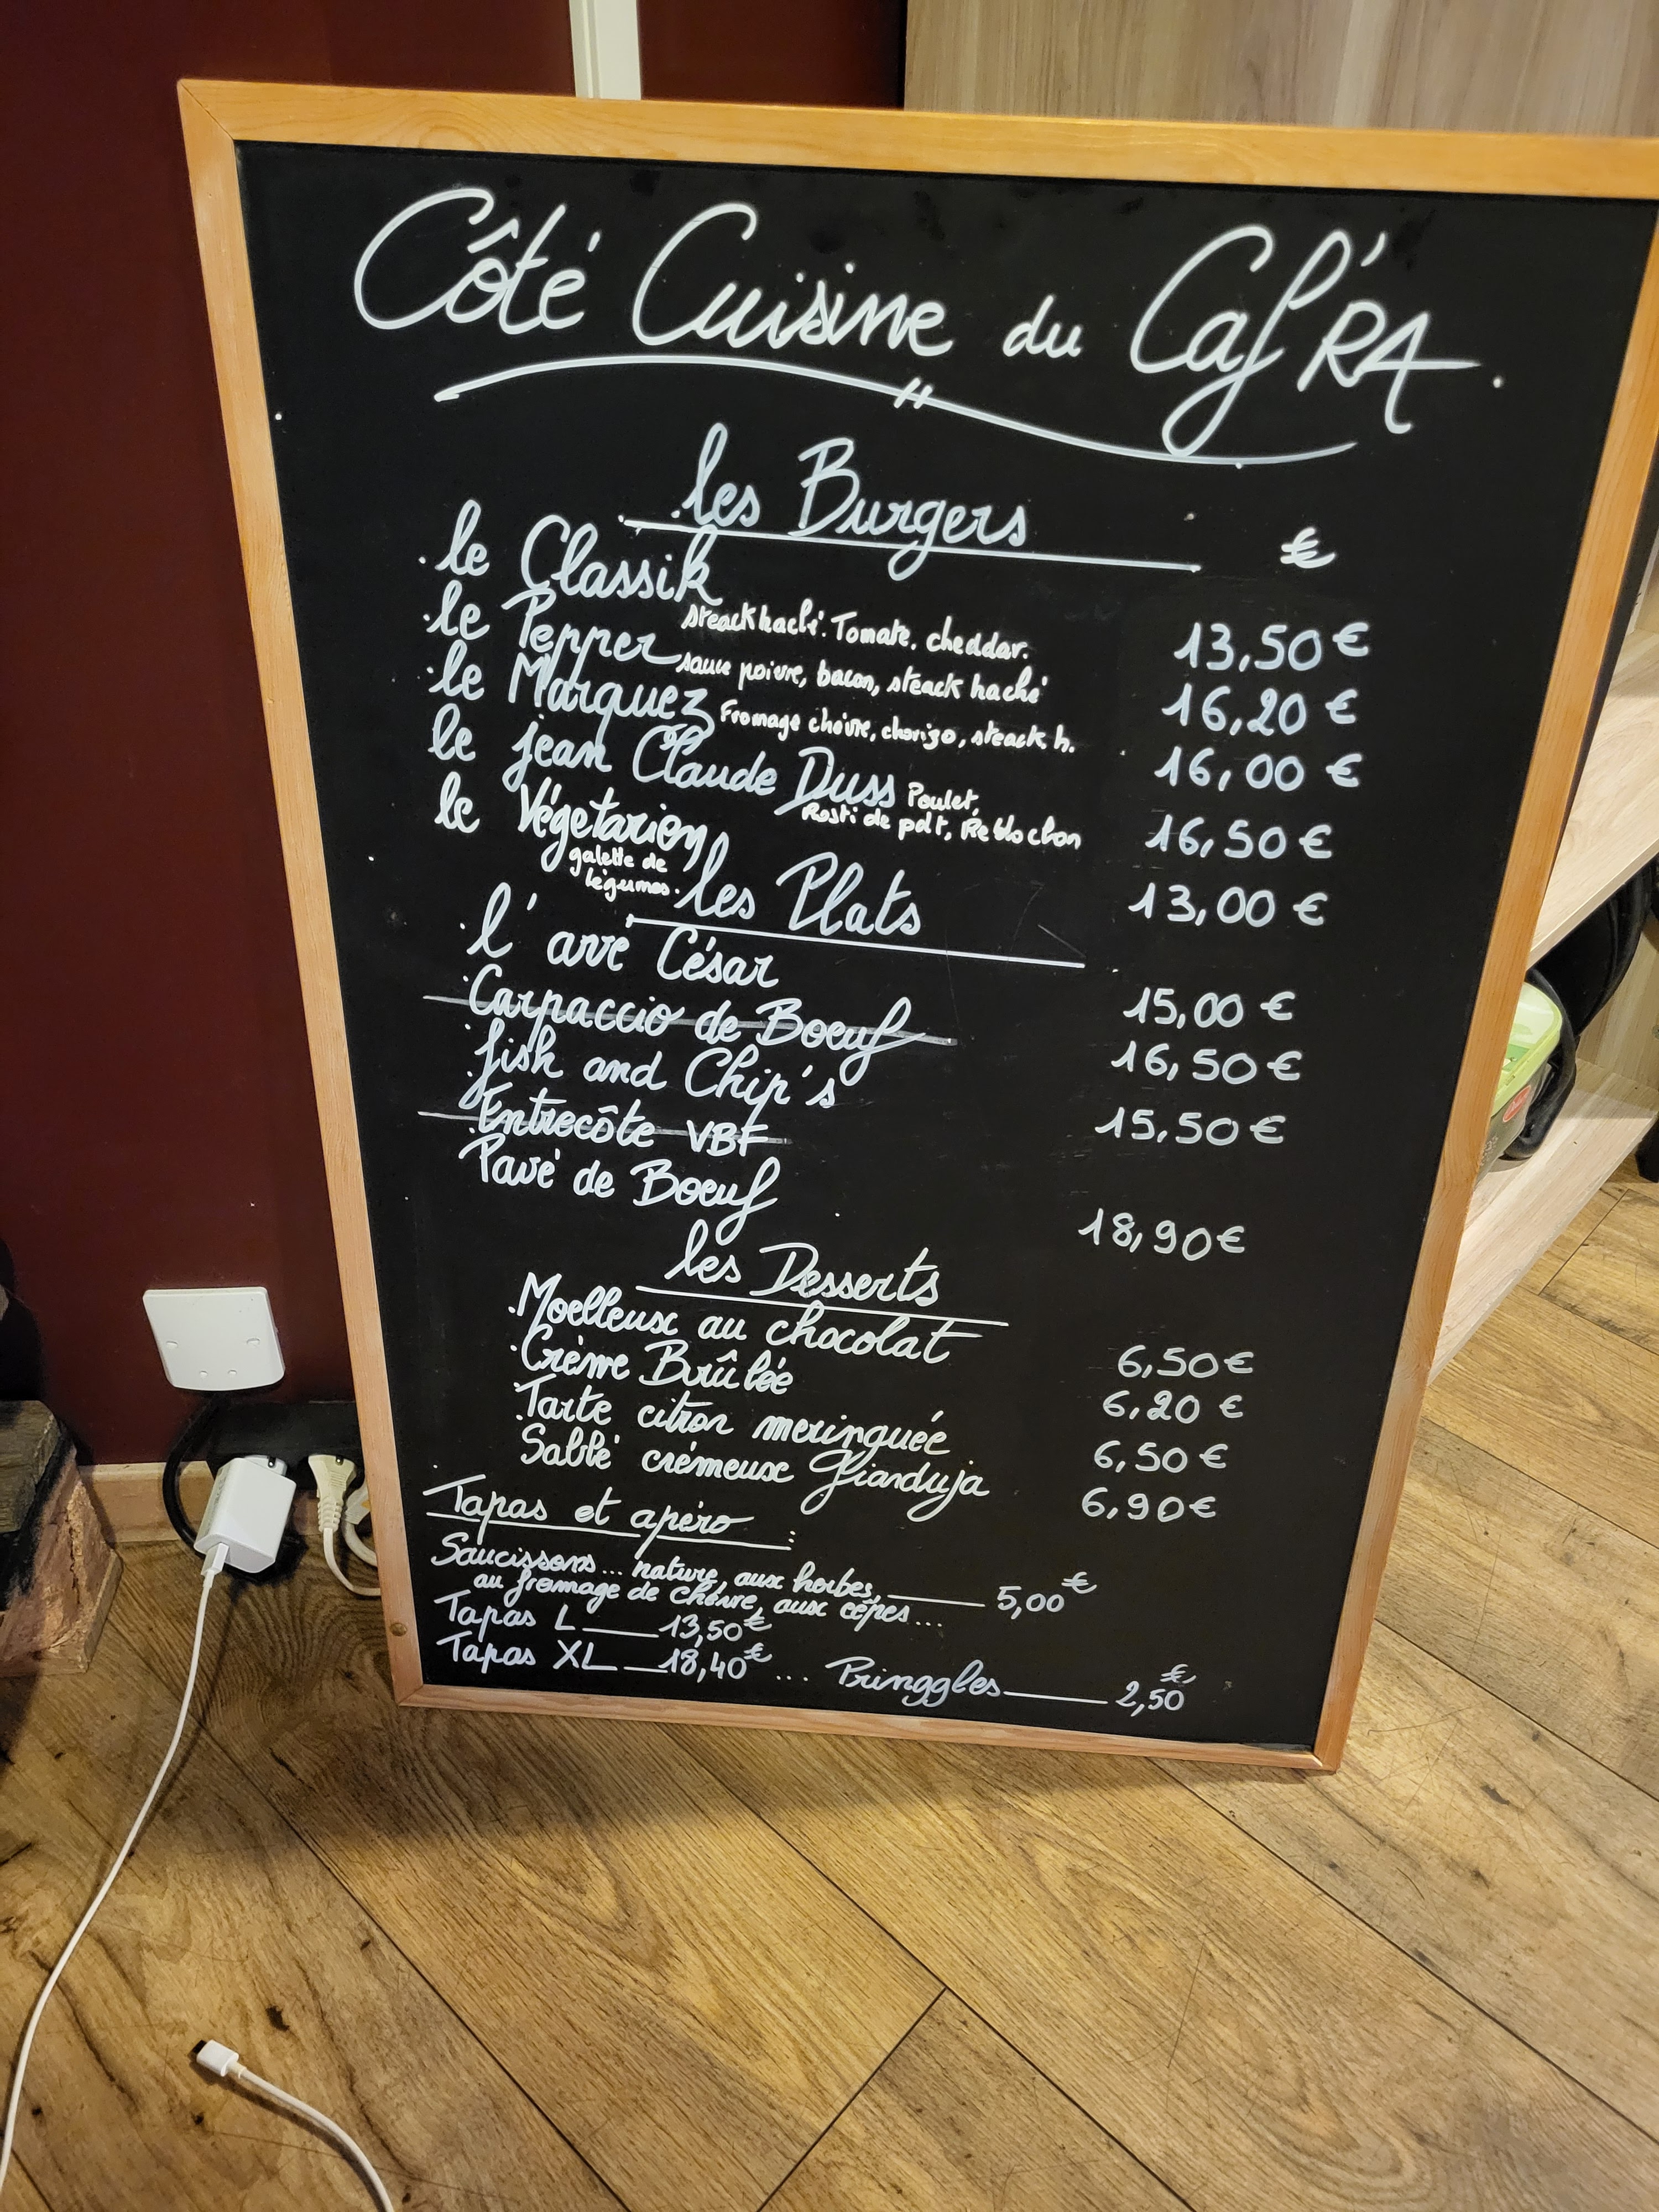 Côté Cuisine du Caf'RA.
les Burgers €
. le Classik steack haché. Tomate, cheddar. 13,50 €
. le Pepper sauce poivre, bacon, steack haché 16,20 €
. le Marquez Fromage chèvre, chorizo, steack h. 16,00 €
le jean Claude Duss Poulet, 16,50 €
Rosti de pdt, Reblochon
le Végétarien 13,00 €
galette de
légumes.
les Plats
. l'avé César 15,00 €
. Carpaccio de Boeuf 16,50 €
. fish and Chip's 15,50 €
. Entrecôte VBF
. Pavé de Boeuf 18,90 €
les Desserts
. Moelleux au chocolat 6,50 €
. Crème Brûlée 6,20 €
. Tarte citron meringuée 6,50 €
. Sablé crémeux Gianduja 6,90 €
Tapas et apéro :
Saucissons... nature, aux herbes, 5,00 €
au fromage de chèvre, aux cèpes...
Tapas L 13,50 €
Tapas XL 18,40 € ... Pringgles 2,50 €